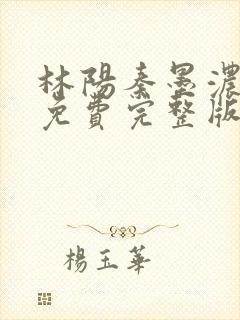 林陽秦墨濃
免費完整版
楊玉華